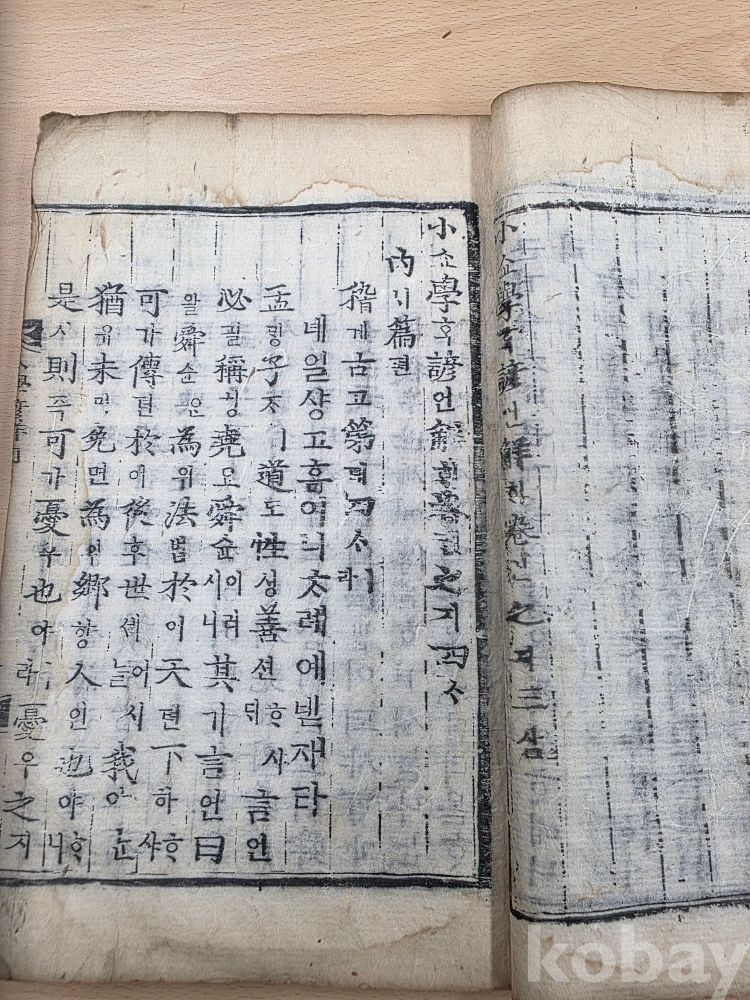 小쇼學ᄒᆞᆨ諺언解ᄒᆡ卷권之지三삼
小쇼學ᄒᆞᆨ諺언解ᄒᆡ卷권之지四ᄉᆞ
內ᄂᆡ篇편
稽계古고第뎨四ᄉᆞㅣ라
녜일샹고홈이니ᄎᆞ례예넫재라
孟ᄆᆡᆼ子ᄌᆞㅣ道도性셩善션ᄒᆞ샤ᄃᆡ言언
必필稱칭堯요舜슌이러시니其기言언曰
왈舜슌은為위法법於어天텬下하ᄒᆞ샤
可가傳뎐於어後후世셰어시ᄂᆞᆯ我아ᄂᆞᆫ
猶유未미免면為위鄕향人인也야ᄒᆞ니
是시則즉可가憂우也야ㅣ라憂우之지
kobay